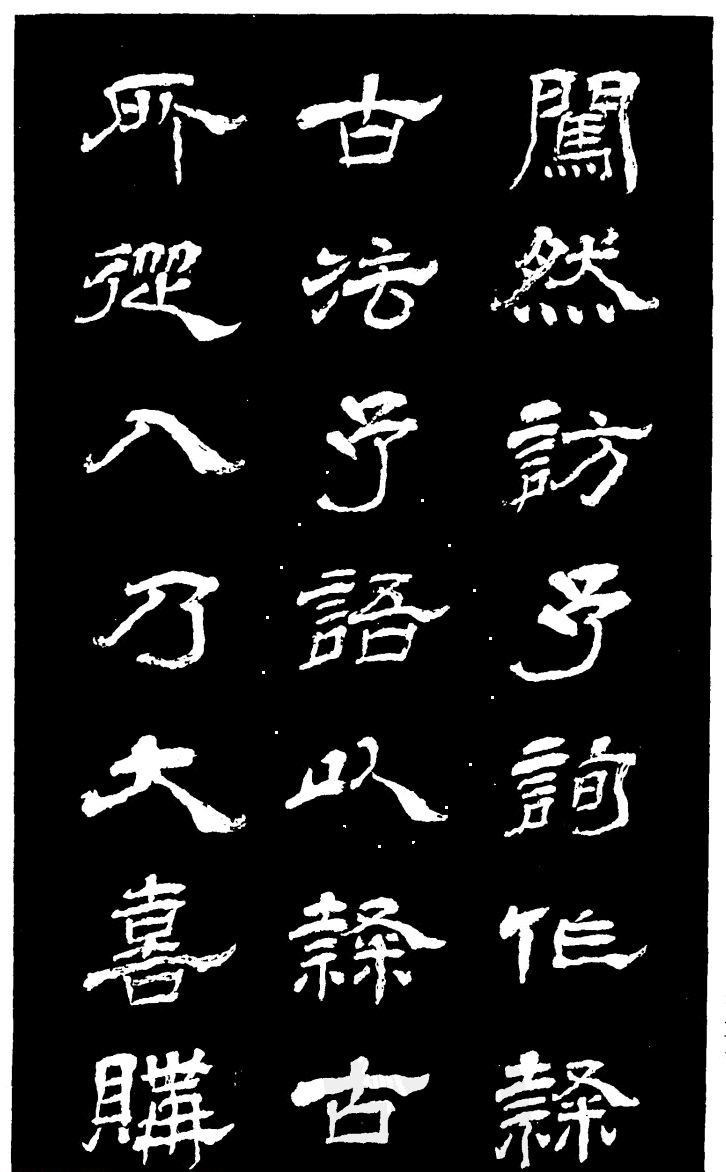 闖然訪予詢作隸
古法予語以隸古
所從入乃大喜購